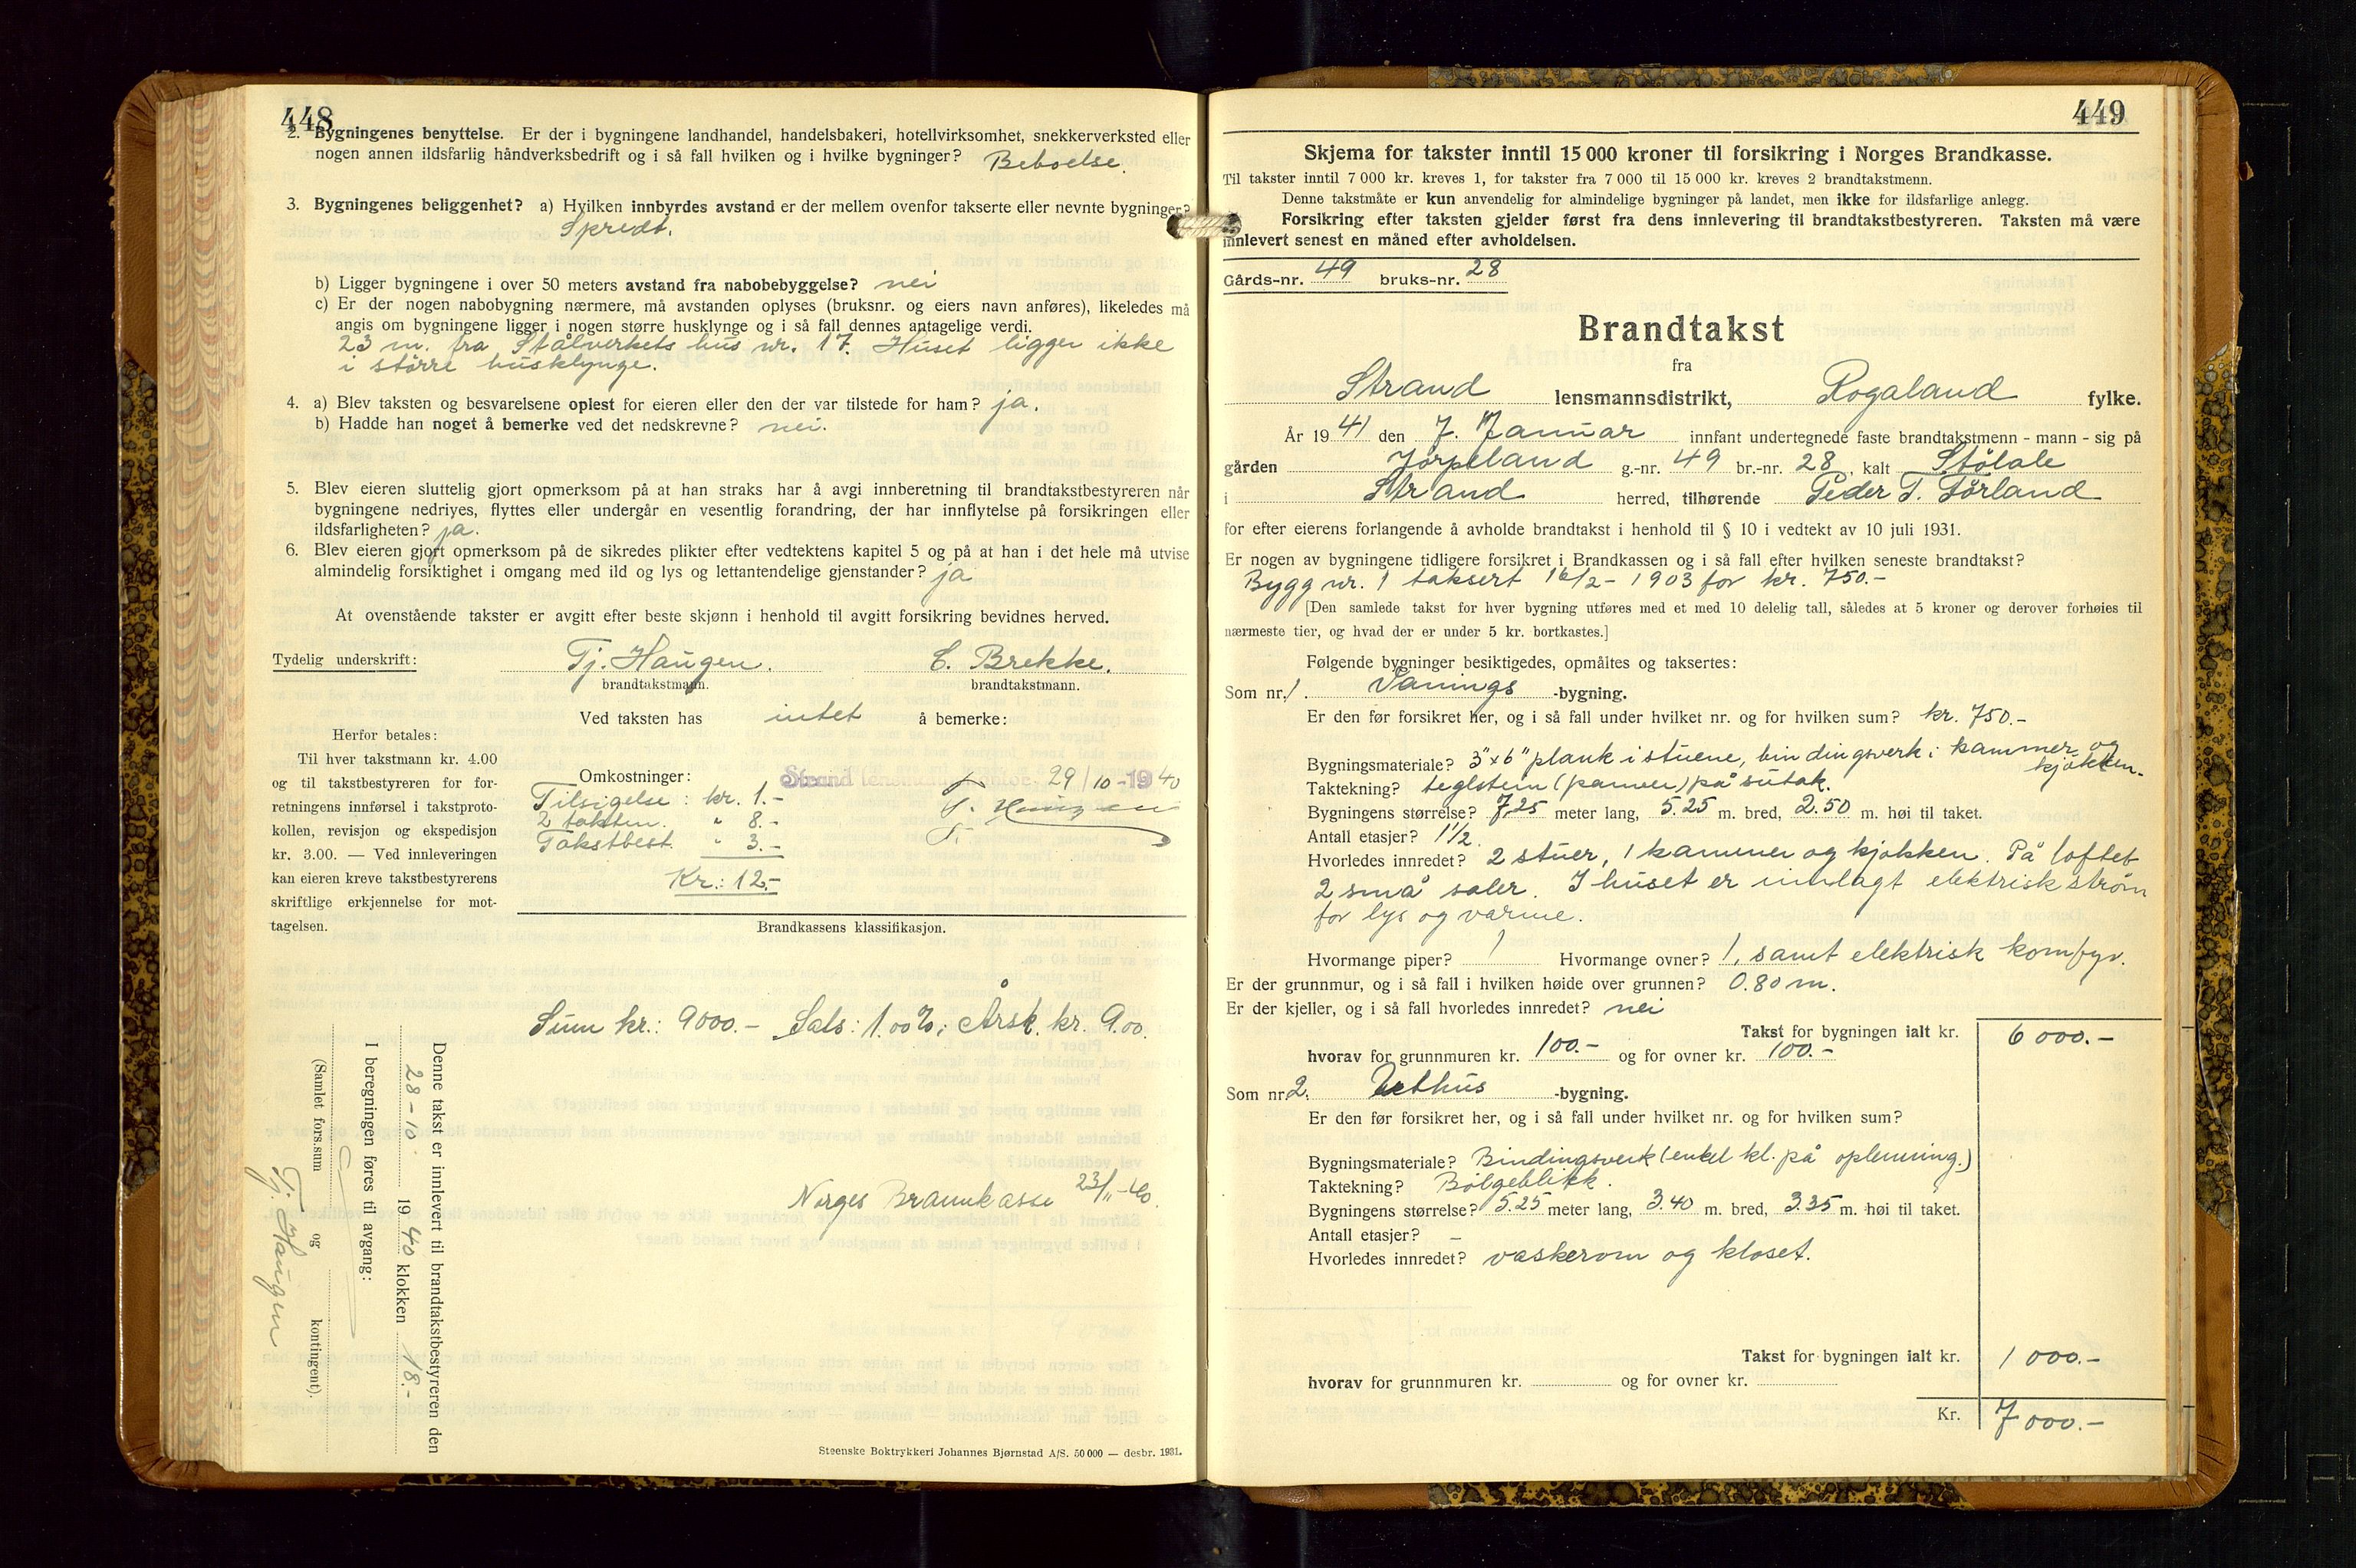 448
2. Bygningenes benyttelse. Er der i bygningene landhandel, handelsbakeri, hotellvirksomhet, snekkerverksted eller
nogen annen ildsfarlig håndverksbedrift og i så fall hvilken og i hvilke bygninger? Beboelse.
3. Bygningenes beliggenhet? a) Hvilken innbyrdes avstand er der mellem ovenfor takserte eller nevnte bygninger?
Spredt.
b) Ligger bygningene i over 50 meters avstand fra nabobebyggelse? nei
c) Er der nogen nabobygning nærmere, må avstanden oplyses (bruksnr. og eiers navn anføres), likeledes må
angis om bygningene ligger i nogen større husklynge og i så fall dennes antagelige verdi.
23 m. fra Stålverkets hus nr. 17. Huset ligger ikke
i större husklynge.
4. a) Blev taksten og besvarelsene oplest for eieren eller den der var tilstede for ham? ja.
b) Hadde han noget å bemerke ved det nedskrevne? nei.
5. Blev eieren sluttelig gjort opmerksom på at han straks har å avgi innberetning til brandtakstbestyreren når
bygningene nedriyes, flyttes eller undergår en vesentlig forandring, der har innflytelse på forsikringen eller
ildsfarligheten? ja.
6. Blev eieren gjort opmerksom på de sikredes plikter efter vedtektens kapitel 5 og på at han i det hele må utvise
almindelig forsiktighet i omgang med ild og lys og lettantendelige gjenstander? ja
At ovenstående takster er avgitt efter beste skjønn i henhold til avgitt forsikring bevidnes herved.
Tydelig underskrift: Tj. Haugen. C. Brekke.
brandtakstmann. brandtakstmann.
Ved taksten has intet å bemerke:
Herfor betales:
Til hver takstmann kr. 4.00
og til takstbestyreren for for-
retningens innførsel i takstproto-
kollen, revisjon og ekspedisjon
kr. 3.00. — Ved innleveringen
kan eieren kreve takstbestyrerens
skriftlige erkjennelse for mot-
tagelsen.
Omkostninger:
Tilsigelse: kr. 1.-
2 takstm. " 8.-
Takstbest. " 3.-
Kr.: 12.-
Strand lensmannskontor 29/10-1940
T. Haugen
Brandkassens klassifikasjon.
Sum kr.: 9000.- Sats: 1.00‰; Årsk. kr. 9.00.
Norges Brannkasse 23/11-40.
Denne takst er innlevert til brandtakstbestyreren den
28-10 1940 klokken 18.-
I beregningen føres til avgang:
(Samlet fors.sum og kontingent).
Tj. Haugen
Steenske Boktrykkeri Johannes Bjørnstad A/S. 50 000 — desbr. 1931.
449
Skjema for takster inntil 15 000 kroner til forsikring i Norges Brandkasse.
Til takster inntil 7 000 kr. kreves 1, for takster fra 7 000 til 15 000 kr. kreves 2 brandtakstmenn.
Denne takstmåte er kun anvendelig for almindelige bygninger på landet, men ikke for ildsfarlige anlegg.
Forsikring efter taksten gjelder først fra dens innlevering til brandtakstbestyreren. Taksten må være
innlevert senest en måned efter avholdelsen.
Gårds-nr. 49 bruks-nr. 28
Brandtakst
fra
Strand lensmannsdistrikt, Rogaland fylke.
År 1941 den 7. Januar innfant undertegnede faste brandtakstmenn - mann - sig på
gården Jörpeland g.-nr. 49 br.-nr. 28, kalt Stölale
i Strand herred, tilhørende Peder T. Förland
for efter eierens forlangende å avholde brandtakst i henhold til § 10 i vedtekt av 10 juli 1931.
Er nogen av bygningene tidligere forsikret i Brandkassen og i så fall efter hvilken seneste brandtakst?
Bygg nr. 1 taksert 16/2-1903 for kr. 750.-
[Den samlede takst for hver bygning utføres med et med 10 delelig tall, således at 5 kroner og derover forhøies til
nærmeste tier, og hvad der er under 5 kr. bortkastes.]
Følgende bygninger besiktigedes, opmåltes og taksertes:
Som nr. 1. Vånings -bygning.
Er den før forsikret her, og i så fall under hvilket nr. og for hvilken sum? kr. 750.-
Bygningsmateriale? 3"x6" plank i stuene, bindingsverk i kammer og
kjökken.
Taktekning? teglstein (panner) på sutak.
Bygningens størrelse? 7.25 meter lang, 5.25 m. bred, 2.50 m. høi til taket.
Antall etasjer? 1½.
Hvorledes innredet? 2 stuer, 1 kammer og kjökken. På loftet
2 små saler. I huset er innlagt elektrisk ström
for lys og varme.
Hvormange piper? 1 Hvormange ovner? 1, samt elektrisk komfyr.
Er der grunnmur, og i så fall i hvilken høide over grunnen? 0.80 m.
Er der kjeller, og i så fall hvorledes innredet? nei
Takst for bygningen ialt kr. 6 000.-
hvorav for grunnmuren kr. 100.- og for ovner kr. 100.-
Som nr. 2. Uthus -bygning.
Er den før forsikret her, og i så fall under hvilket nr. og for hvilken sum?
Bygningsmateriale? Bindingsverk (enkel kl. på oplenning.)
Taktekning? Bölgeblikk.
Bygningens størrelse? 5.25 meter lang, 3.40 m. bred, 3.35 m. høi til taket.
Antall etasjer? -
Hvorledes innredet? vaskerom og kloset.
Takst for bygningen ialt kr. 1 000.-
hvorav for grunnmuren kr. og for ovner kr.
Kr. 7 000.-